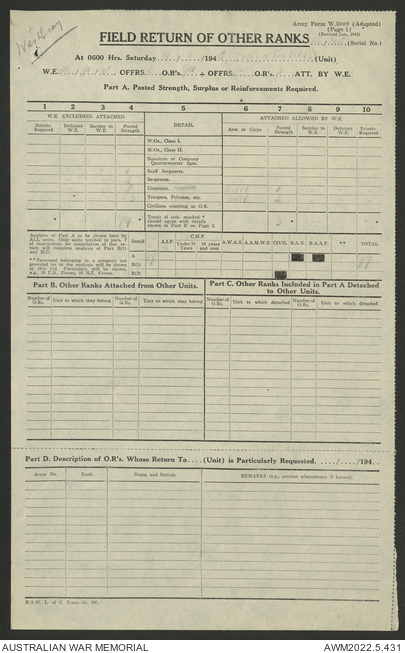 Army Form W.3009 (Adapted)
(Page 1)
(Revised Jan., 1943)
FIELD RETURN OF OTHER RANKS
...../...../..... (Serial No.)
At 0600 Hrs. Saturday ...../...../194 (Unit)
W.E. OFFRS. O.R's. + OFFRS. O.R's. ATT. BY W.E.
Part A. Posted Strength, Surplus or Reinforcements Required.
1 2 3 4 5 6 7 8 9 10
W.E. EXCLUDING ATTACHED DETAIL ATTACHED ALLOWED BY W.E.
Reinfts. Required Deficient W.E. Surplus to W.E. Posted Strength Arm or Corps Posted Strength Surplus to W.E. Deficient W.E. Reinfts. Required
W.Os., Class I.
W.Os., Class II.
Squadron or Company Quartermaster Sgts.
Staff Sergeants.
Sergeants.
Corporals.
Troopers, Privates, etc.
Civilians counting as O.R.
Totals of cols. marked * should agree with details shown in Part E. on Page 2.
Analysis of Part A to be shown here by ALL units. Only units notified in para. 7 of instructions for completion of this return will complete analysis of Part B(1) and B(2).
** Personnel belonging to a category not provided for in the analysis will be shown in this Col. Particulars will be shown, e.g., 10 U.K. Forces, 10 N.Z. Forces.
Detail A.I.F. C.M.F. Under 19 Years 19 years and over A.W.A.S. A.A.M.W.S. Civil R.A.N. R.A.A.F. ** TOTAL
A
B(1)
B(2)
Part B. Other Ranks Attached from Other Units.
Part C. Other Ranks Included in Part A Detached to Other Units.
Number of O.Rs. Unit to which they belong Number of O.Rs. Unit to which they belong Number of O.Rs. Unit to which detached Number of O.Rs. Unit to which detached
Part D. Description of O.R's. Whose Return To.....(Unit) is Particularly Requested. ...../...../194..
Army No. Rank Name and Initials REMARKS (e.g., present whereabouts if known).
AUSTRALIAN WAR MEMORIAL AWM2022.5.431